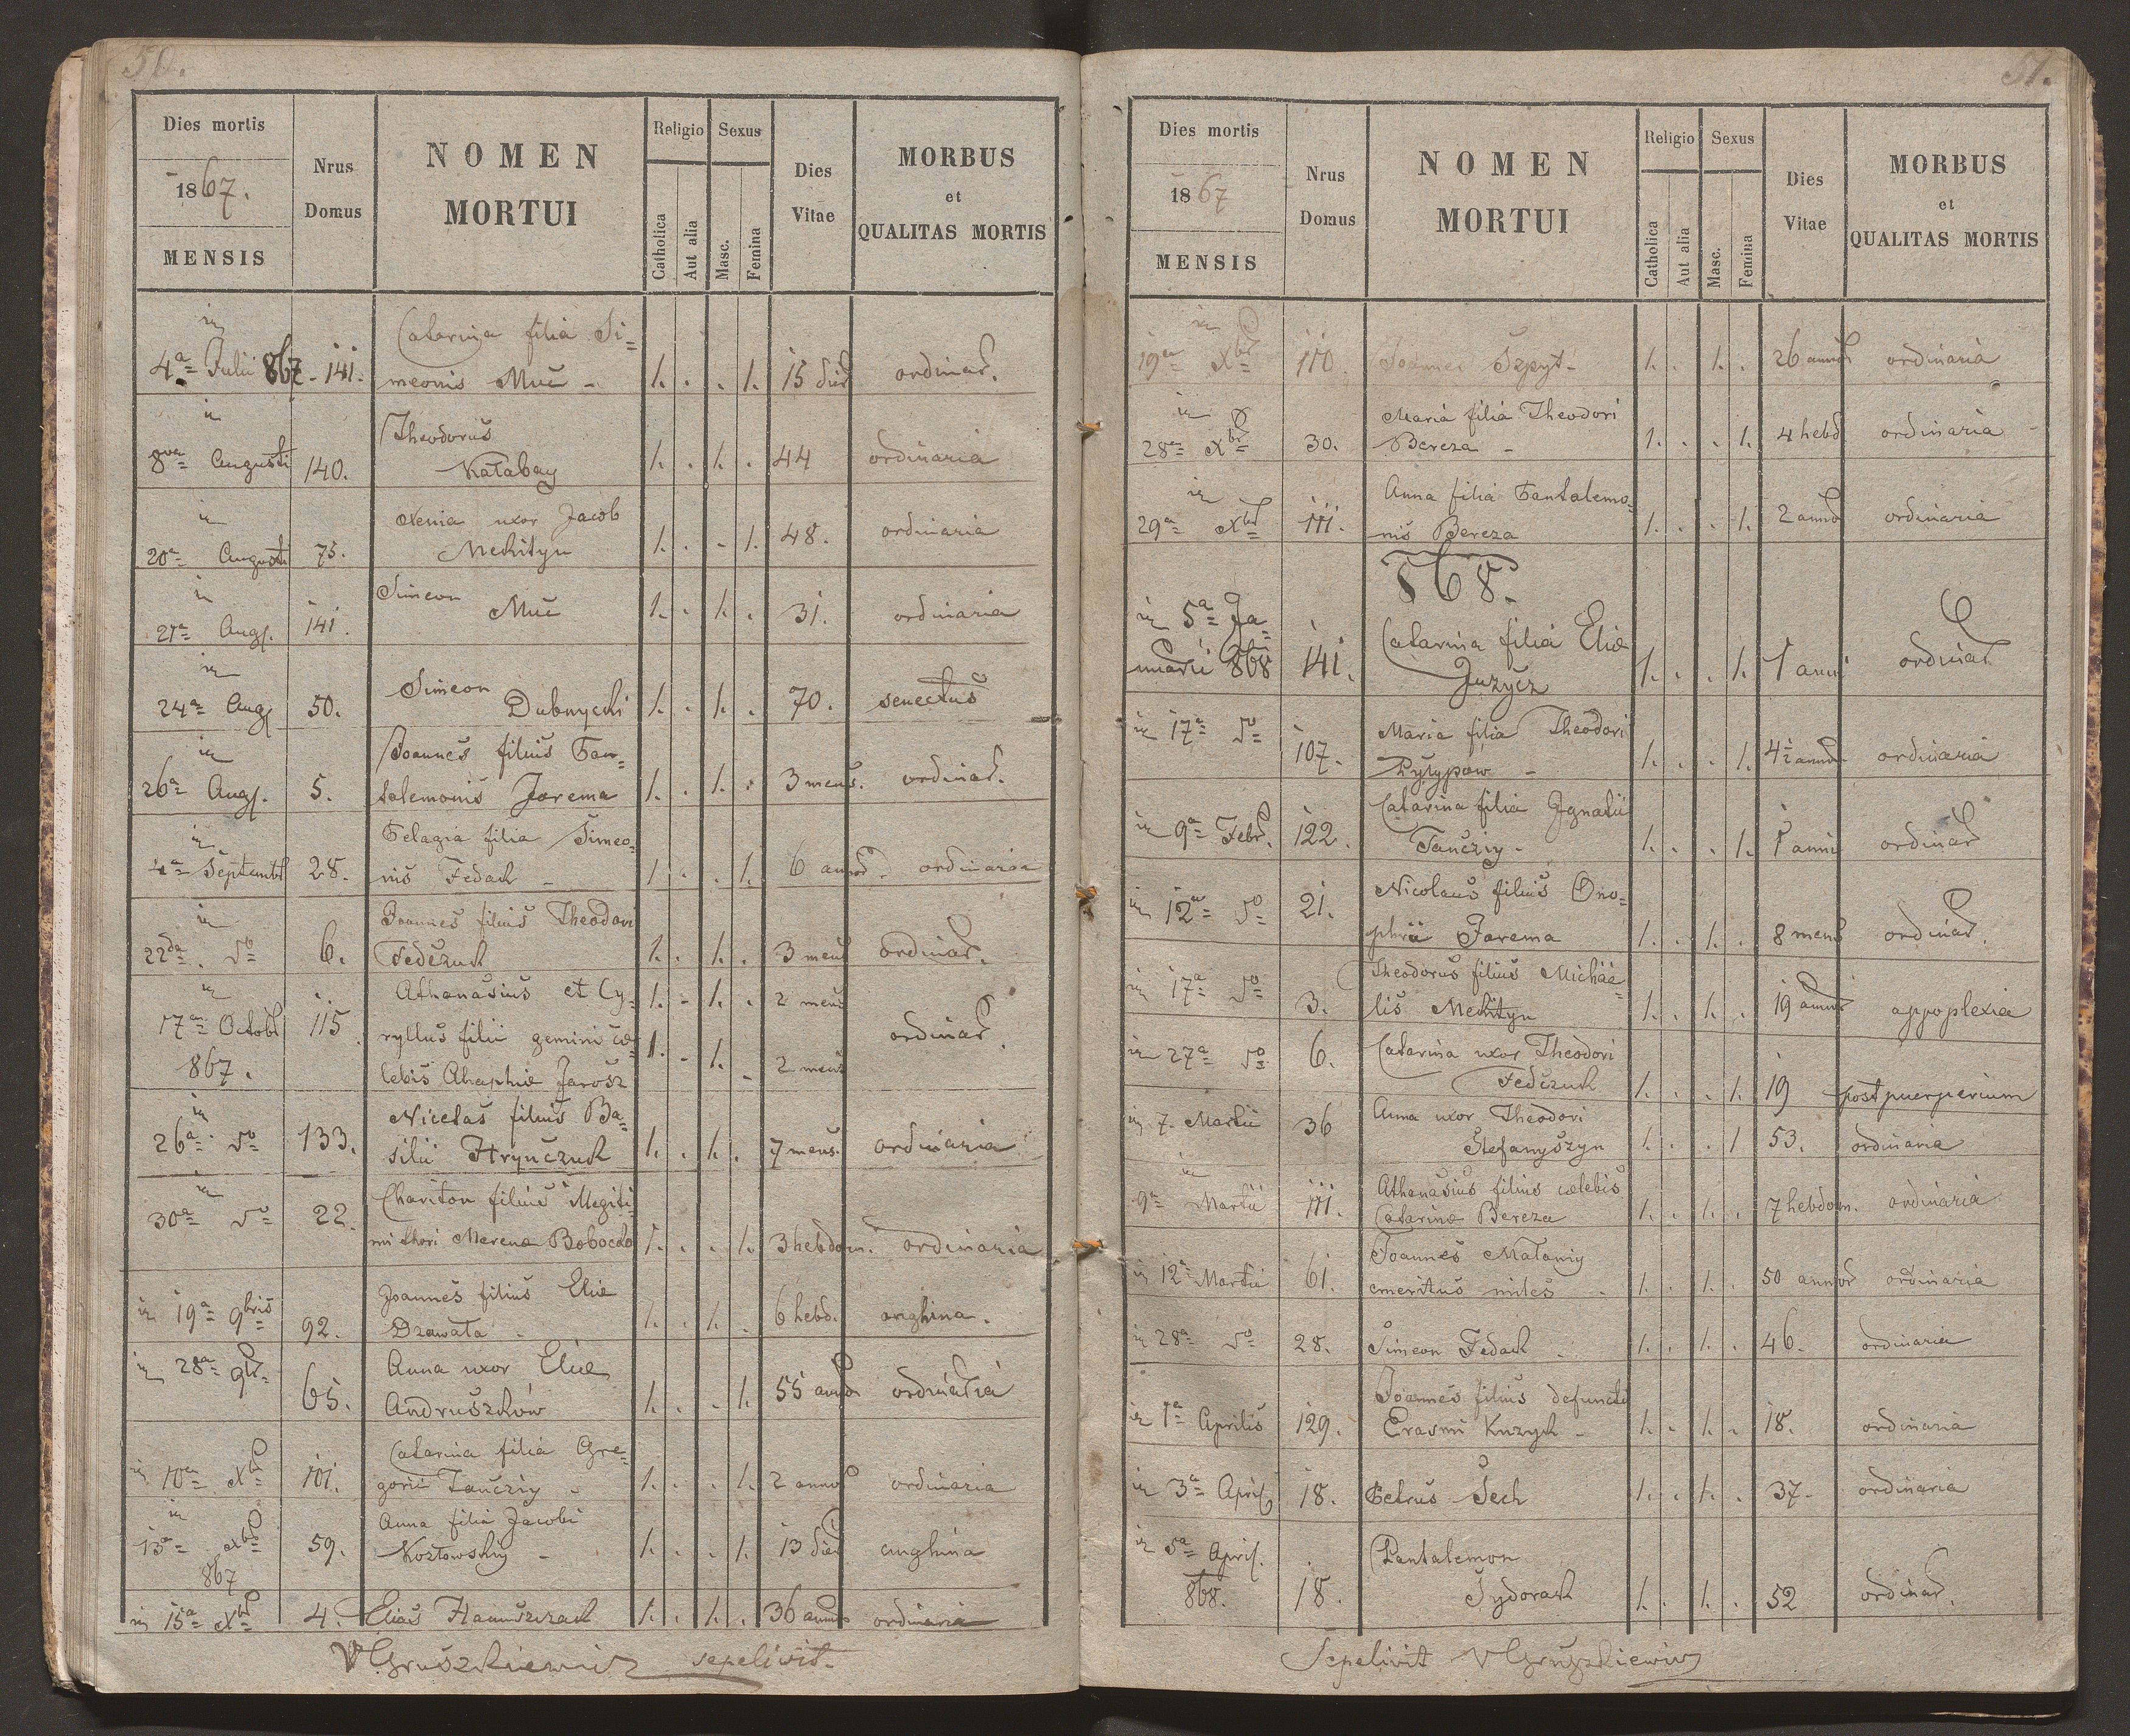 50.
Dies mortis
1867.
MENSIS
Nrus
Domus
NOMEN
MORTUI
Religio
Catholica
Aut alia
Sexus
Masc.
Femina
Dies
Vitae
MORBUS
et
QUALITAS MORTIS
4a Julii 867 141. Catarina filia Si=
meonis Muc - 1. . . 1. 15 dier ordinar.
8va Augusti 140. Theodorus
Kałabay 1. . 1. . 44 ordinaria
20a Augusti 75. Xenia uxor Jacob
Mechityn 1. . - 1. 48. ordinaria
21a Aug. 141. Simeon
Muc 1. . 1. . 31. ordinaria
24a Aug. 50. Simeon
Dubnycki 1. . 1. . 70. senectus
26a Aug. 5. Joannes filius Pan=
talemonis Jarema 1. . 1. . 3 mens. ordinar.
4a Septembr 28. Pelagia filia Simeo=
nis Fedak - 1. . . 1. 6 annor. ordinaria
22da do 6. Joannes filius Theodori
Fedczuk 1. . 1. . 3 mens ordinar.
17a Octobr 115 Athanasius et Cy= 1. - 1. . 2 mens
867. ryllus filii gemini cæ= 1. - 1. - 2 mens ordinar.
lebis Ahaphiæ Jarosz
26a do 133. Nicetas filius Ba=
silii Hrynczuk 1. . 1. . 7 mens. ordinaria
30a do 22. Chariton filius
Bobocko 1. . . 1. 3 hebdom. ordinaria
in 19a 9bris 92. Joannes filius Eliæ
Drawała - 1. . 1. . 6 hebd. anghina.
in 28a 9br. 65. Anna uxor Eliæ
Andruszków 1. . . 1. 55 annor. ordinaria
in 10a Xbr 101. Catarina filia Gre=
gorii Tancziy - 1. . . 1. 2 annor ordinaria
13a Xbr
867 59. Anna filia Jacobi
Kozłowskiy - 1. . . 1. 13 dier anghina
in 15a Xbr 4. Elias Hanuszczak 1. . 1. . 36 annor ordinaria
V Gruszkiewicz sepelivit.
51.
Dies mortis
1867
MENSIS
Nrus
Domus
NOMEN
MORTUI
Religio
Catholica
Aut alia
Sexus
Masc.
Femina
Dies
Vitae
MORBUS
et
QUALITAS MORTIS
19a Xbr 110. Joannes Szpyt - 1. . 1. . 26 annor ordinaria
28a Xbr 30. Maria filia Theodori
Bereza - 1. . . 1. 4 hebd ordinaria
29a Xbr 111. Anna filia Pantalemo=
nis Bereza 1. . . 1. 2 annor ordinaria
868.
in 5a Ja=
nuarii 868 141. Catarina filia Eliæ
Juzycz 1. . . 1. 1 anni ordinar
in 17a do 107. Maria filia Theodori
Pyłypow - 1. . . 1. annor. ordinaria
in 9a Febr. 122. Catarina filia Ignatii
Tancziy - 1. . . 1. 1 anni ordinar
in 12a do 21. Nicolaus filius Ono=
phrii Jarema 1. . 1. . 8 mens ordinar.
in 17a do 3. Theodorus filius Michae=
lis Mechityn 1. . 1. . 19 annor appoplexia
in 27a do 6. Catarina uxor Theodori
Fedczuk 1. . . 1. 19 post puerperium
in 7. Martii 36 Anna uxor Theodori
Stefanyszyn 1. . . 1 53. ordinaria
9a Martii 111. Athanasius filius cælebis
Catarinæ Bereza 1. . 1. . 7 hebdom. ordinaria
in 12a Martii 61. Joannes Małaniy
emeritus miles . 1. . 1. . 50 annor ordinaria
in 28a do 28. Simeon Fedak . 1. . 1. . 46. ordinaria
in 1a Aprilis 129. Joannes filius defuncti
Erasmi Kuzyk - 1. . 1. . 18. ordinaria
in 3a April 18. Petrus Sech 1. . 1. . 37. ordinaria
in 5a April.
868. 18. Pantalemon
Sydorak 1. . 1. . 52 ordinar.
Sepelivit V Gruszkiewicz